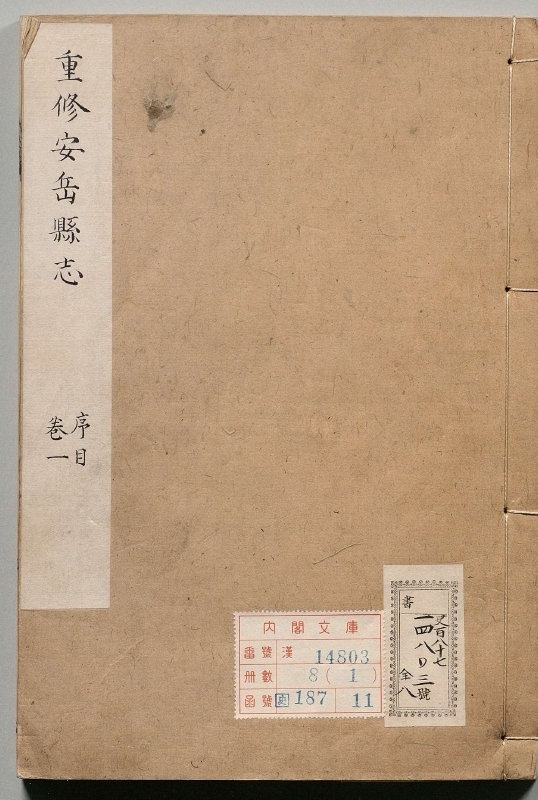 重修安岳縣志
序目
卷一
内閣文庫
番號 漢 14803
冊數 8(1)
函號 史 187 11
書
史百八十七
一四八〇三號
全八